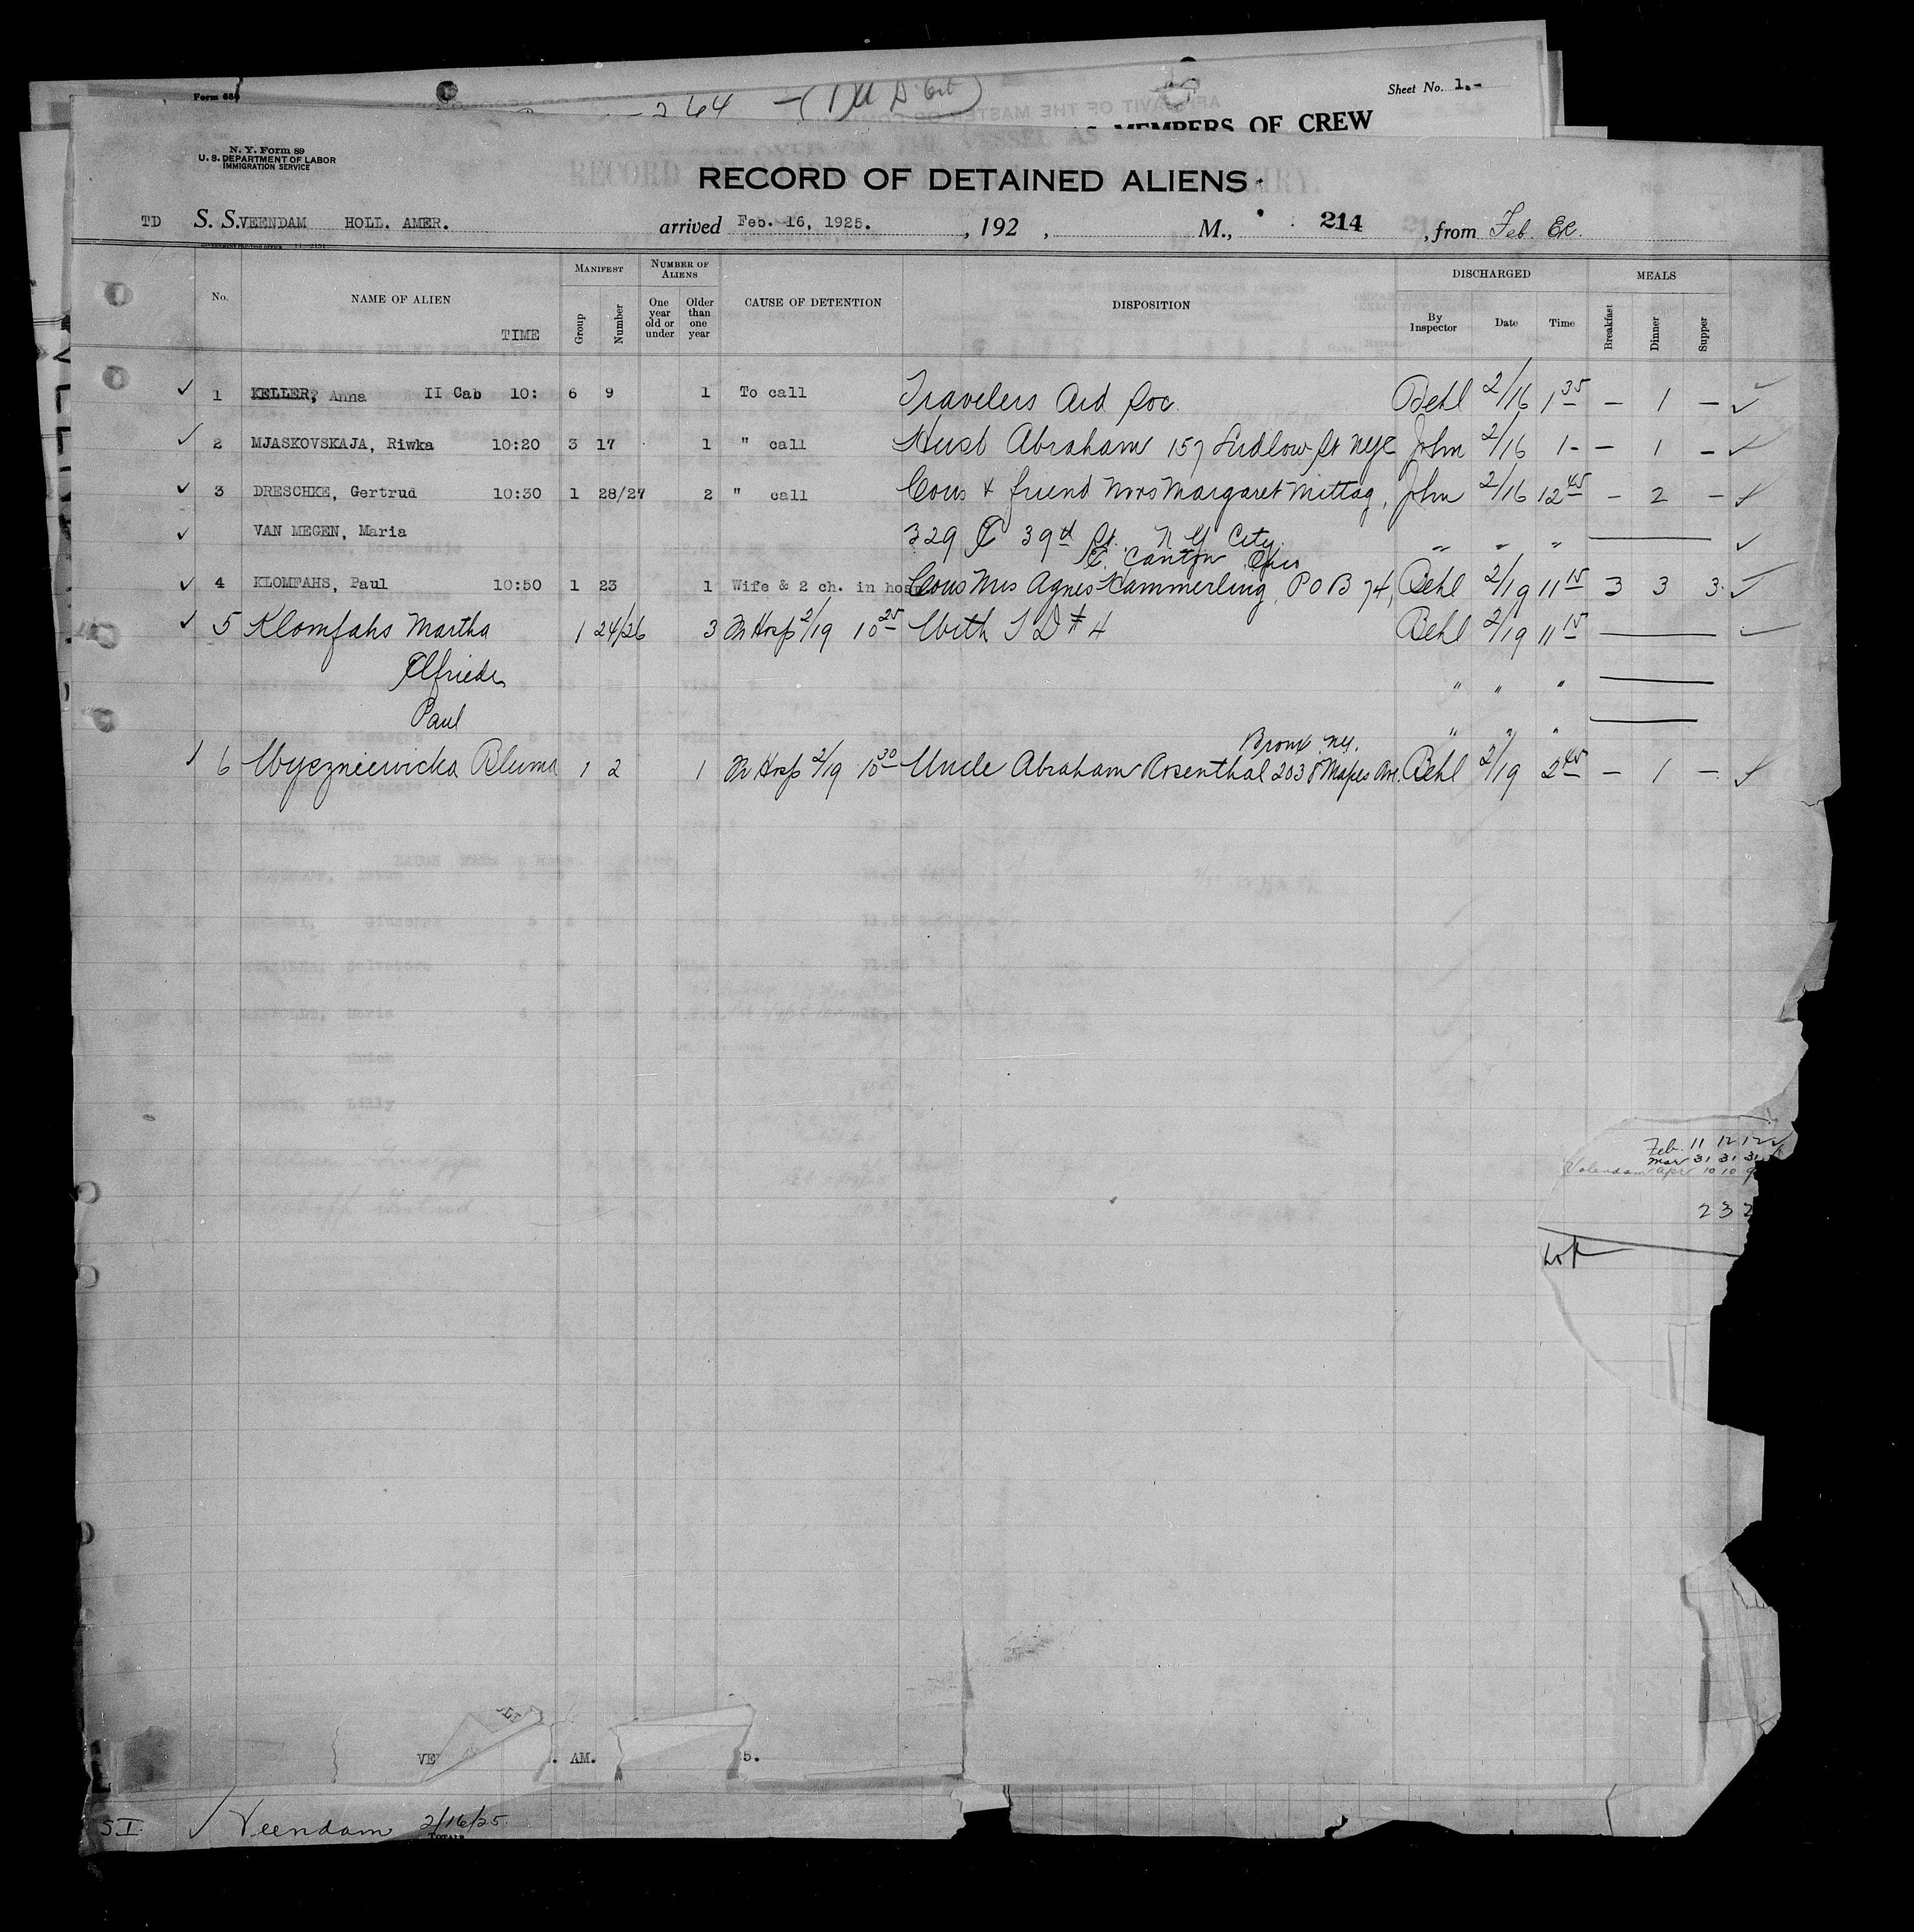 Sheet No. 1.-
Form 680
264 -
MEMBERS OF CREW
N. Y. Form 89
U. S. DEPARTMENT OF LABOR
IMMIGRATION SERVICE
RECORD OF DETAINED ALIENS
TD S. S. VEENDAM HOLL. AMER. arrived Feb. 16, 1925. , 192 , M., 214 , from Feb.
No. NAME OF ALIEN TIME MANIFEST Group Number NUMBER OF ALIENS One year old or under Older than one year CAUSE OF DETENTION DISPOSITION DISCHARGED By Inspector Date Time MEALS Breakfast Dinner Supper
1 KELLER, Anna II Cab 10: 6 9 1 To call Travelers Aid Soc. Behl 2/16 1 35 — 1 —
2 MJASKOVSKAJA, Riwka 10:20 3 17 1 " call Husb Abraham 157 Ludlow St NYC John 2/16 1- — 1 —
3 DRESCHKE, Gertrud 10:30 1 28/27 2 " call Cous & friend Mrs Margaret Mittag, John 2/16 12 45 — 2 —
VAN MEGEN, Maria 329 E 39d St. N Y City " " "
E. Canton Ohio
4 KLOMFAHS, Paul 10:50 1 23 1 Wife & 2 ch. in hosp Cous Mrs Agnes Hammerling, P O B 74, Behl 2/19 11 15 3 3 3
5 Klomfahs Martha 1 24/26 3 In Hosp 2/19 10 25 With T D # 4 Behl 2/19 11 15
Elfriede " " "
Paul " " "
Bronx NY.
6 Wyeznieewicka Bluma 1 2 1 In Hosp 2/19 10 30 Uncle Abraham Rosenthal 2038 Mapes Ave. Behl 2/19 2 45 — 1 —
Feb. 11 12 12
Mar 31 31 31
Volendam Apr 10 10 9
232
VE . AM. 5.
SI Veendam 2/16/25
TOTALS